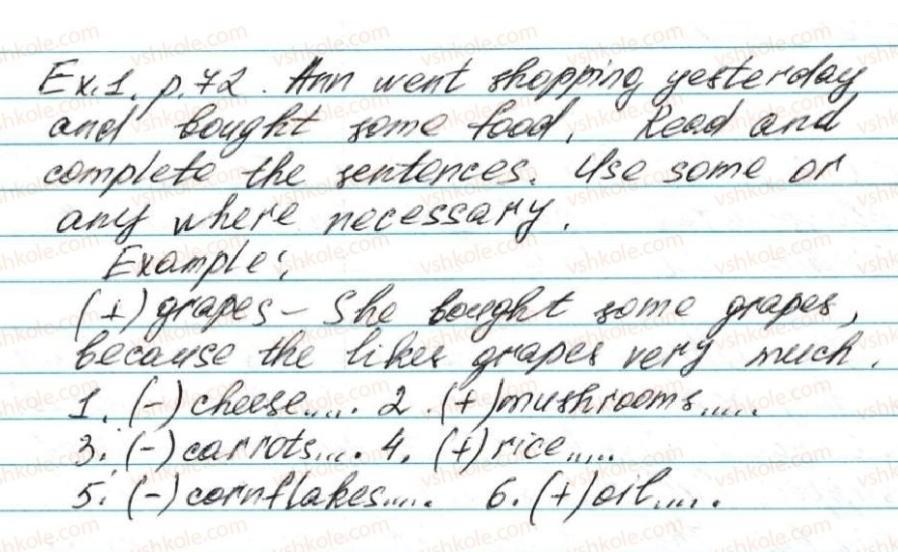 Ex.1, p.72. Ann went shopping yesterday
and bought some food. Read and
complete the sentences. Use some or
any where necessary.
Example:
(+) grapes – She bought some grapes,
because the likes grapes very much.
1. (-) cheese..... 2. (+) mushrooms.....
3. (-) carrots.... 4. (+) rice.....
5. (-) cornflakes..... 6. (+) oil.....